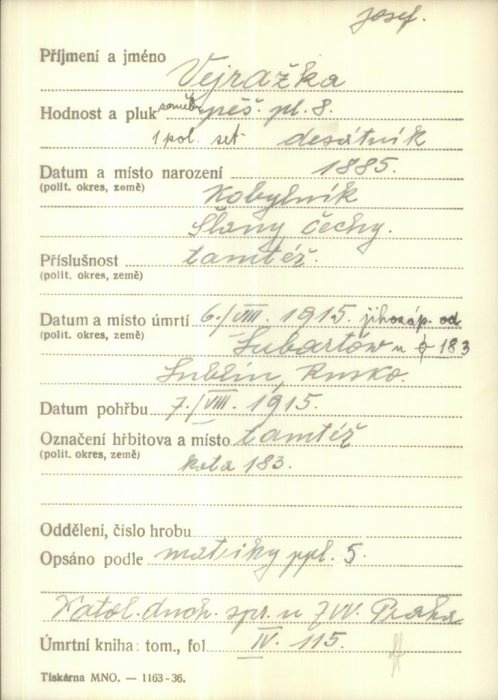 Josef.
Příjmení a jméno Vejražka
Hodnost a pluk zeměbr. pěš. pl. 8.
1 pol. set. desátník
Datum a místo narození 1885.
(polit. okres, země) Kobylník
Slaný Čechy.
Příslušnost tamtéž.
(polit. okres, země)
Datum a místo úmrtí 6./VIII. 1915. jihozáp. od
(polit. okres, země) Lubartów u ϕ 183
Lublin, Rusko.
Datum pohřbu 7./VIII. 1915.
Označení hřbitova a místo tamtéž
(polit. okres, země) kota 183.
Oddělení, číslo hrobu
Opsáno podle matriky ppl. 5.
Katol. duch. spr. u ZVV. Praha
Úmrtní kniha: tom., fol IV. 115.
Tiskárna MNO. — 1163-36.